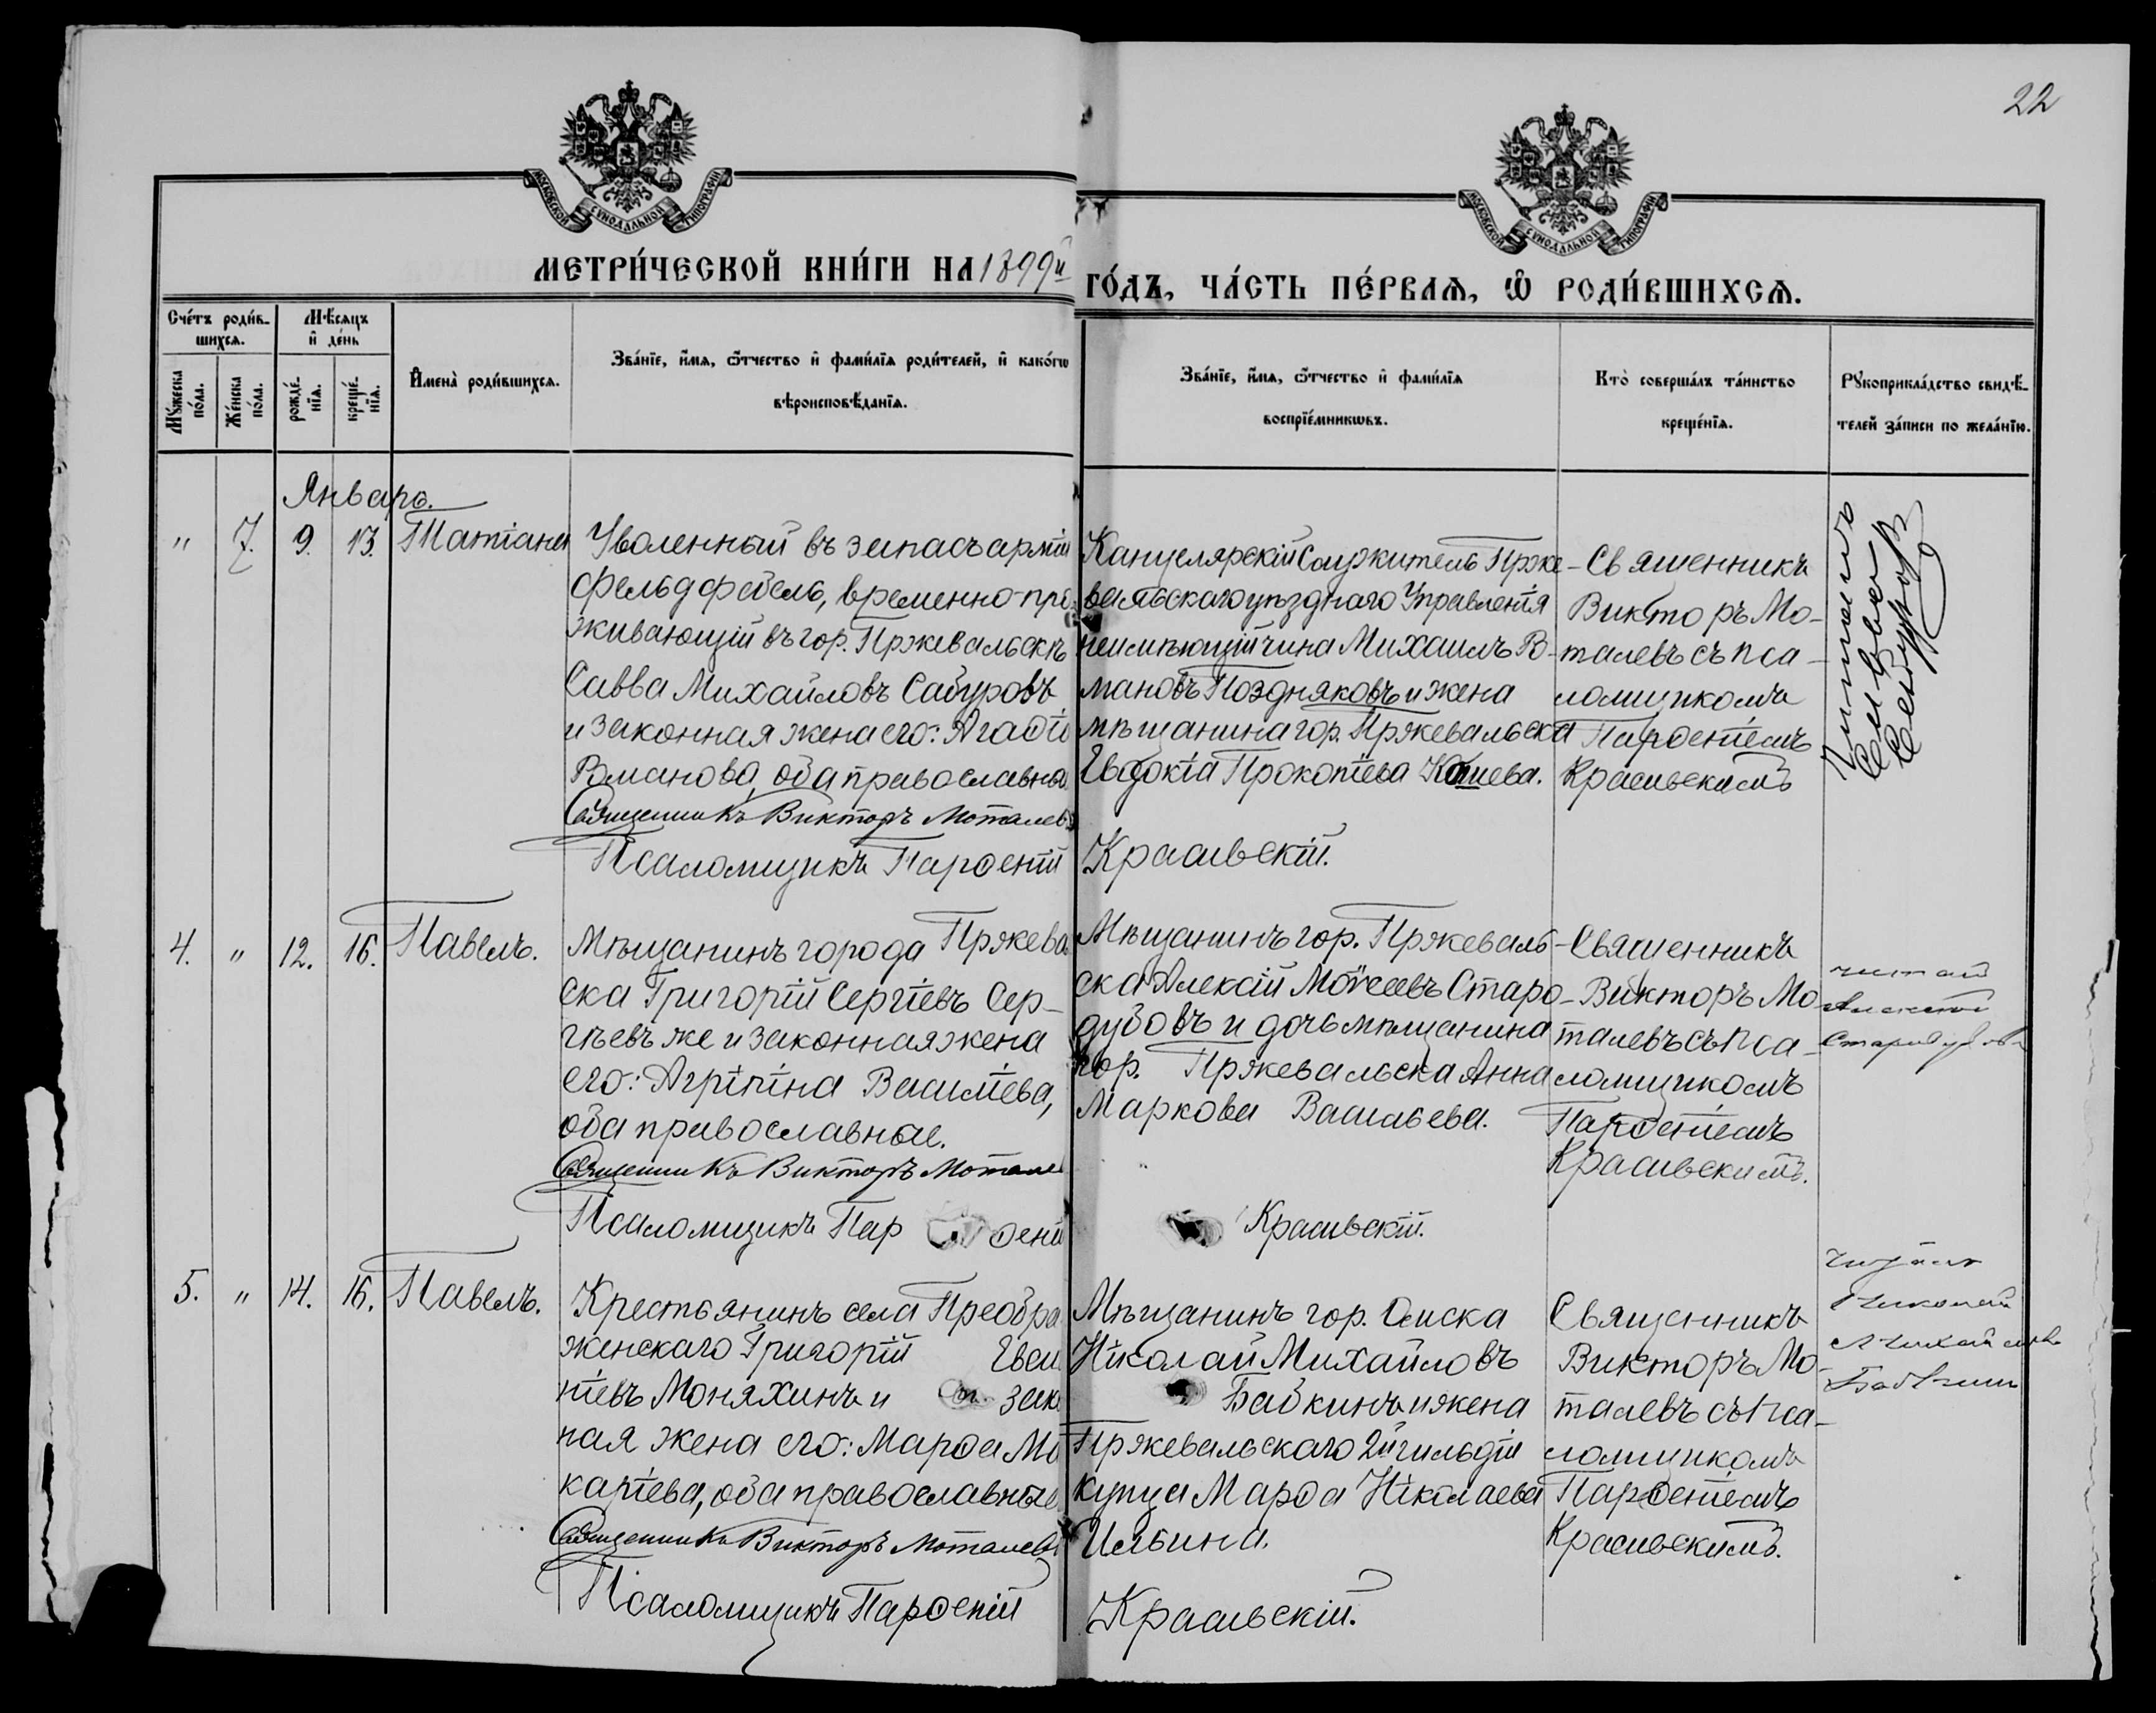 22
МОСКОВСКОЙ СѴНОДАЛЬНОЙ ТИПОГРАФІИ
МОСКОВСКОЙ СѴНОДАЛЬНОЙ ТИПОГРАФІИ
МЕТРИ́ЧЕСКОЙ КНИ́ГИ НА 1899й
ГО́ДЪ, ЧА́СТЬ ПЕ́РВАѦ, Ѽ РОДИ́ВШИХСѦ.
Сче́тъ роди́в-
шихсѧ.
Мꙋ́жеска
по́ла.
Же́нска
по́ла.
Мѣ́сѧцъ
и҆ де́нь
рожде́-
нїѧ.
креще́-
нїѧ.
И҆мена̀ роди́вшихсѧ.
Зва́нїе, и҆́мѧ, ѻ҆́тчество и҆ фами́лїѧ роди́телей, и҆ како́гѡ
вѣроисповѣ́данїѧ.
Зва́нїе, и҆́мѧ, ѻ҆́тчество и҆ фами́лїѧ
воспрїе́мникѡвъ.
Кто̀ соверша́лъ та́инство
креще́нїѧ.
Рꙋкоприкла́дство свидѣ́-
телей за́писи по жела́нїю.
Январь.
" 7. 9. 13. Татіана
Уволенный въ запасъ арміи
фельдфебель, временно-про
живающій въ гор. Пржевальскѣ
Савва Михайловъ Сабуровъ
и законная жена его: Агаѳiя
Романова, оба православные
Священникъ Викторъ Моталевъ
Псаломщикъ Парѳеній
Канцелярскій Служитель Прже-
вальскаго уѣзднаго Управленія
неимѣющій чина Михаилъ Ро-
мановъ Поздняковъ и жена
мѣщанина гор. Пржевальска
Евдокія Прокопіева
Красивскій.
Священникъ
Викторъ Мо-
талевъ съ пса-
ломщикомъ
Парѳеніемъ
Красивскимъ
Читалъ
Савва
Сабуровъ
4. " 12. 16. Павелъ.
Мѣщанинъ города Пржеваль
ска Григорій Сергіевъ Сер-
гѣевъ же и законная жена
его: Агріпіна Василіева,
оба православные.
Священникъ Викторъ Моталев
Псаломщикъ Пар ѳені
Мѣщанинъ гор. Пржеваль-
ска Алексій Моѵсеевъ Старо-
дубовъ и дочь мѣщанина
гор. Пржевальска Анна
Маркова Васильева.
Красивскій.
Священникъ
Викторъ Мо-
талевъ съ пса-
ломщикомъ
Парѳеніемъ
Красивскимъ.
читал
Алексей
Стародубовъ
5. " 14. 16. Павелъ.
Крестьянинъ села Преобра
женскаго Григорій Евси
ніевъ Моняхинъ и зак
ная жена его: Марѳа Ма
каріева, оба православные
Священникъ Викторъ Моталевъ
Псаломщикъ Парѳеній
Мѣщанинъ гор. Омска
Ніколай Михайловъ
Бабкинъ и жена
Пржевальскаго 2й гильдіи
купца Марѳа Ніколаева
Ильина.
Красивскій.
Священникъ
Викторъ Мо-
талевъ съ пса-
ломщикомъ
Парѳеніемъ
Красивскимъ.
Читалъ
Николай
Михайловъ
Бабкинъ